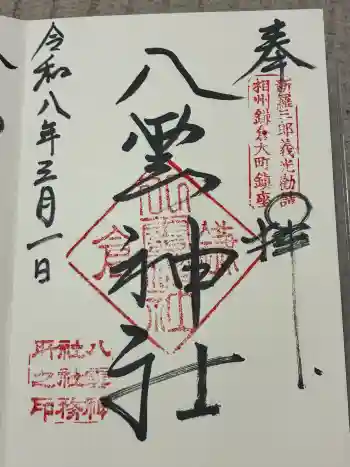 奉拝
新羅三郎義光勧請
相州鎌倉大町鎮座
八雲神社
鎌倉
八雲神社
八雲神
社社務
所之印
令和八年三月一日